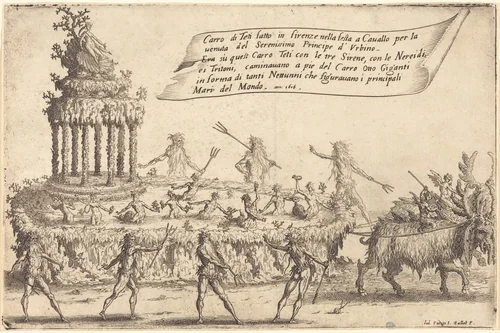 Carro di Teti fatto in firenze nella festa a Cavallo per la
venuta del Serenissimo Principe d'Urbino.
Era su quest Carro Teti con le tre Sirene, con le Nereidi,
ei Tritoni, caminavano a pie del Carro Otto Giganti
in forma di tanti Nettunni che figuravano i principali
Mari del Mondo.
Callot F.